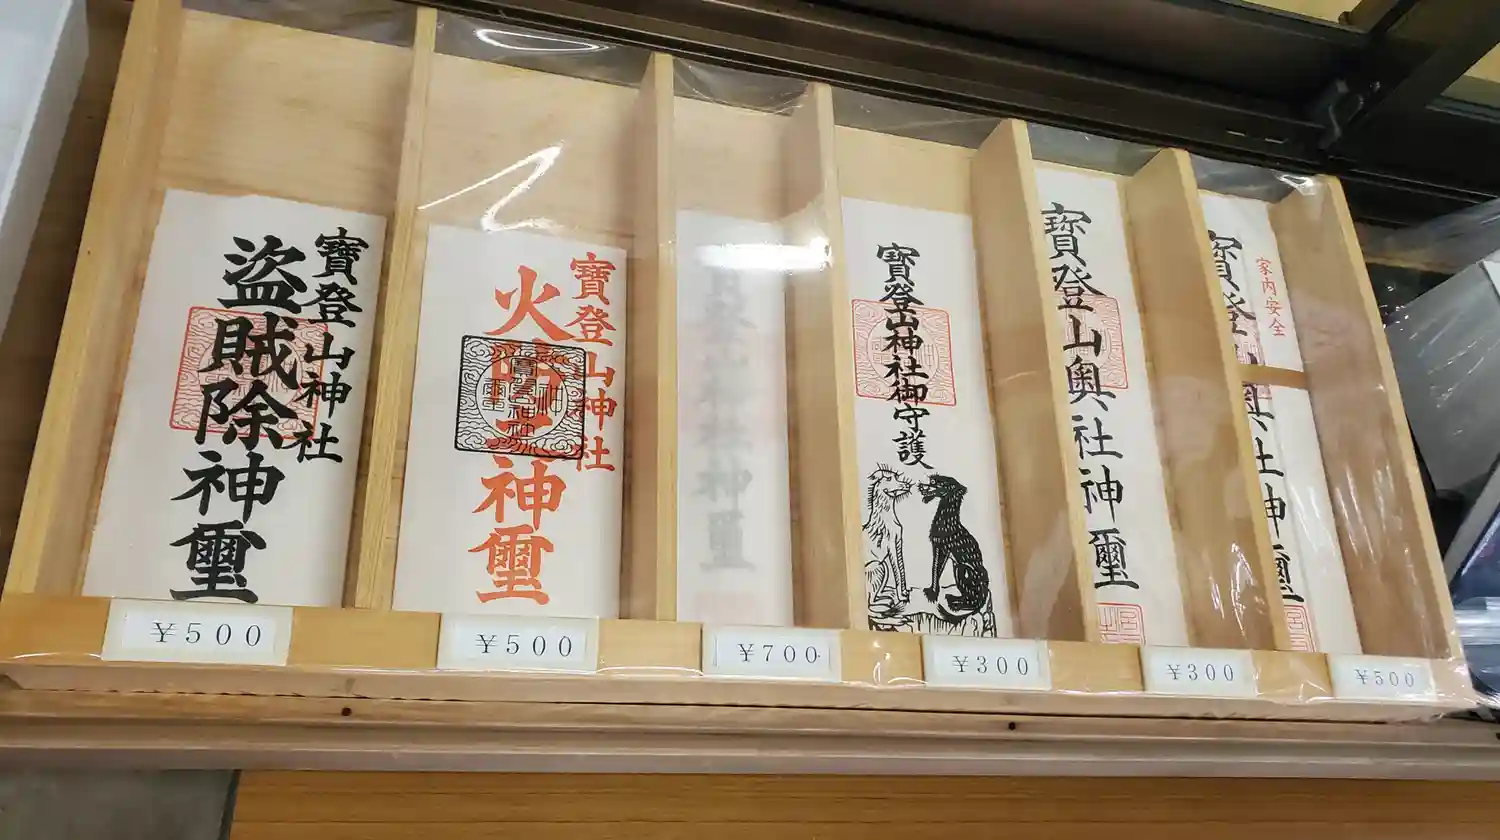 寶登山神社
盜賊除神璽
¥500
寶登山神社
火
神璽
¥500
神璽
¥700
寳登山神社御守護
¥300
寳登山奥社神璽
¥300
家内安全
寳登
奥社神璽
¥500